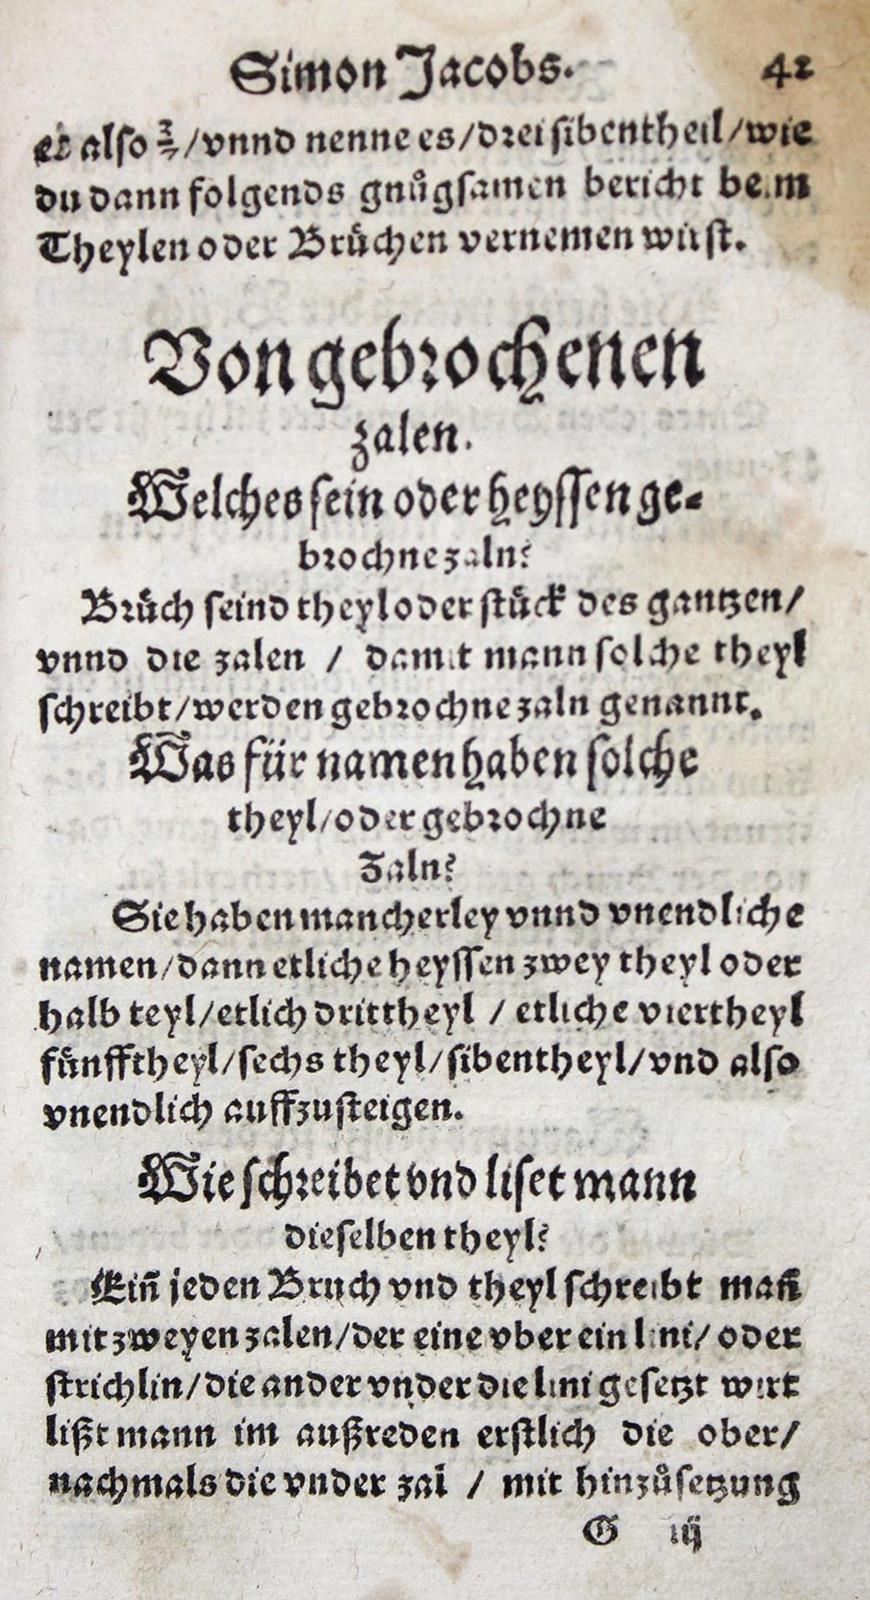 Simon Jacobs. 42
es also 3/7/vnnd nenne es/drei sibentheil/wie
du dann folgends gnůgsamen bericht beim
Theylen oder Brůchen vernemen würst.
Von gebrochenen
zalen.
Welches sein oder heyssen ge-
brochne zaln?
Brůch seind theyl oder stůck des gantzen/
vnnd die zalen / damit mann solche theyl
schreibt/werden gebrochne zaln genannt.
Was für namen haben solche
theyl/oder gebrochne
Zaln?
Sie haben mancherley vnnd vnendliche
namen/dann etliche heyssen zwey theyl oder
halb teyl/etlich drittheyl / etliche viertheyl
fünfftheyl/sechs theyl/sibentheyl/vnd also
vnendlich auffzusteigen.
Wie schreibet vnd liset mann
dieselben theyl?
Ein̄ jeden Bruch vnd theyl schreibt man̄
mit zweyen zalen/der eine vber ein lini/ oder
strichlin/die ander vnder die lini gesetzt wirt
lißt mann im außreden erstlich die ober/
nachmals die vnder zal / mit hinzůsetzung
G iij